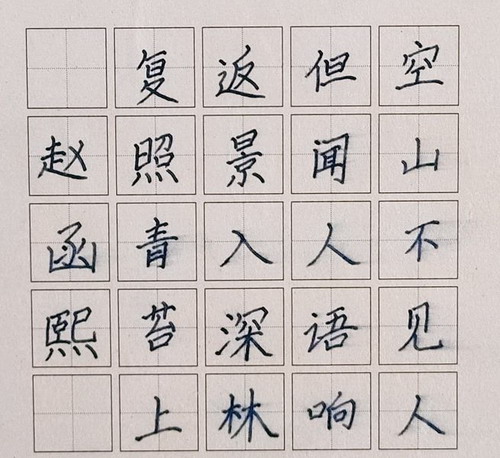 空山不见人
但闻人语响
返景入深林
复照青苔上
赵函熙